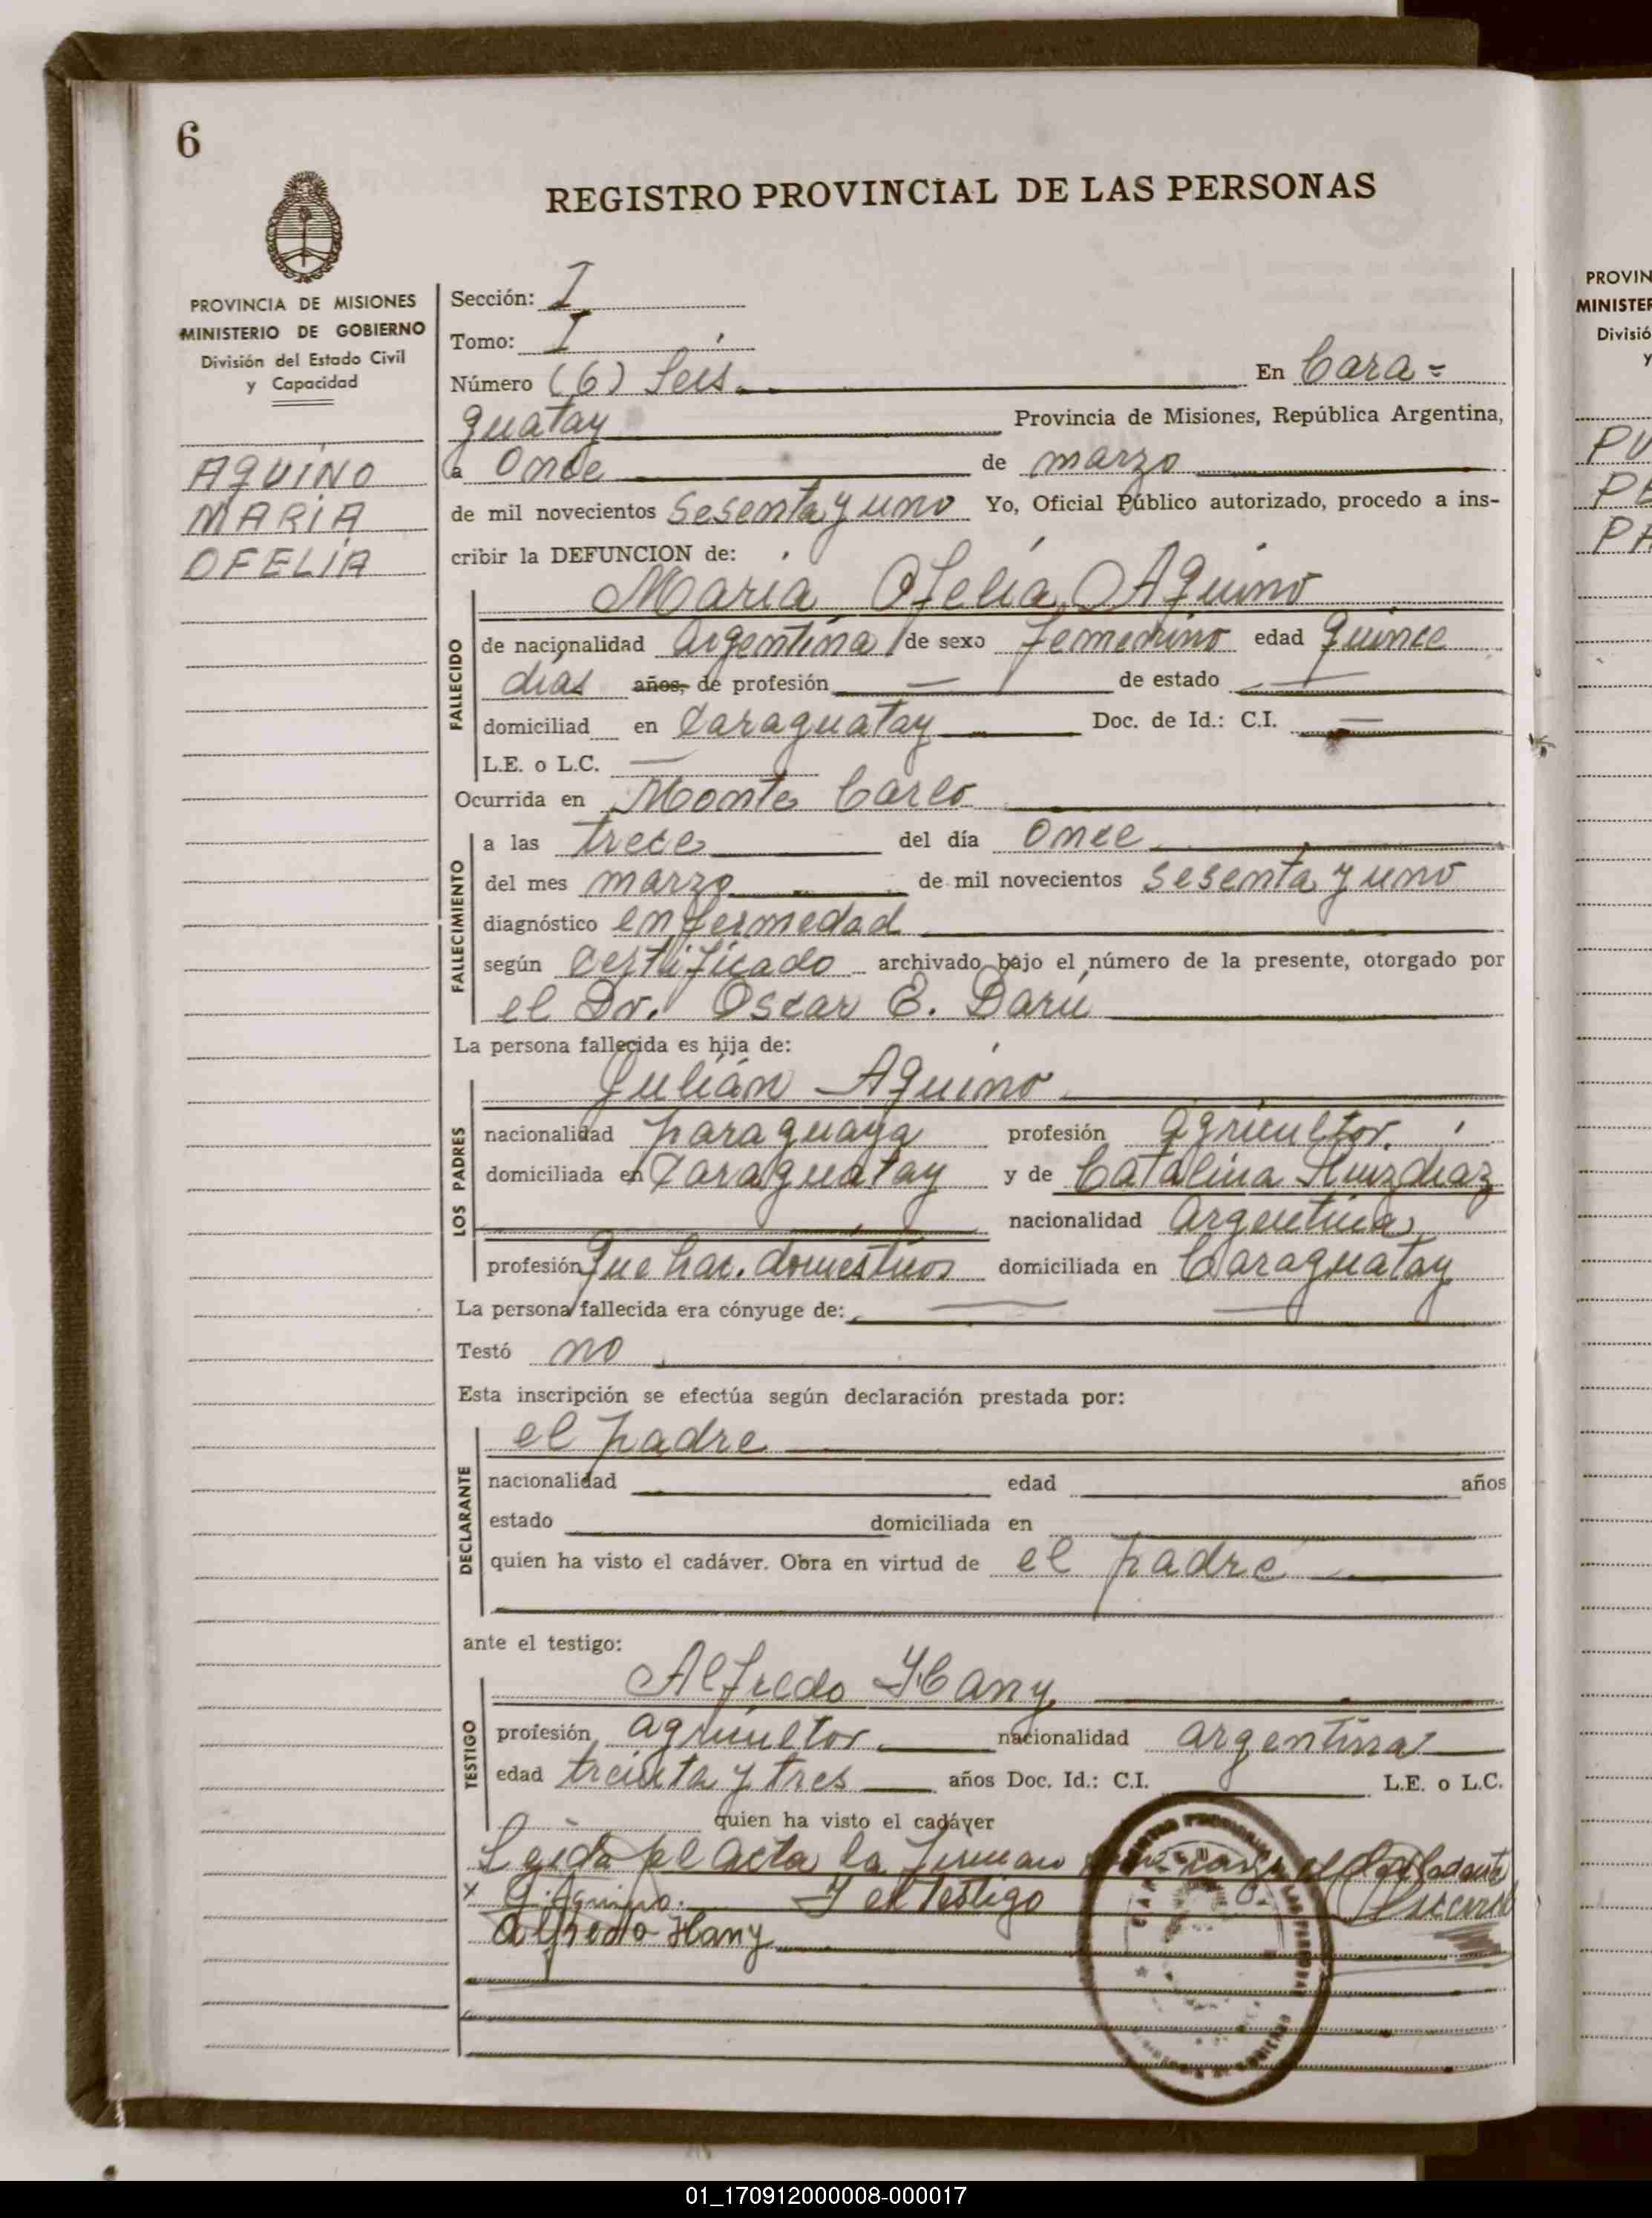 6
REGISTRO PROVINCIAL DE LAS PERSONAS
PROVINCIA DE MISIONES
MINISTERIO DE GOBIERNO
División del Estado Civil
y Capacidad
AQUINO
MARIA
OFELIA
Sección: I
Tomo: I
Número (6) Seis En Cara=
guatay Provincia de Misiones, República Argentina,
a Once de marzo
de mil novecientos sesenta y uno Yo, Oficial Público autorizado, procedo a ins-
cribir la DEFUNCION de:
María Ofelia Aquino
FALLECIDO
de nacionalidad argentina de sexo femenino edad quince
días años, de profesión — de estado —
domiciliad en Caraguatay Doc. de Id.: C.I. —
L.E. o L.C. —
Ocurrida en Monte Carlo
FALLECIMIENTO
a las trece del día Once
del mes marzo de mil novecientos sesenta y uno
diagnóstico enfermedad
según certificado archivado bajo el número de la presente, otorgado por
el Dr. Oscar E. Darú
La persona fallecida es hija de:
Julián Aquino
LOS PADRES
nacionalidad paraguaya profesión agricultor.
domiciliada en Caraguatay y de Catalina Ruizdíaz
nacionalidad argentina
profesión que hac. domésticos domiciliada en Caraguatay
La persona fallecida era cónyuge de: — —
Testó no
Esta inscripción se efectúa según declaración prestada por:
el padre
DECLARANTE
nacionalidad edad años
estado domiciliada en
quien ha visto el cadáver. Obra en virtud de el padre
ante el testigo:
Alfredo Hany
TESTIGO
profesión agricultor nacionalidad argentina
edad treinta y tres años Doc. Id.: C.I. L.E. o L.C.
quien ha visto el cadáver
Leída el acta la firman
x J. Aquino. y el testigo
Alfredo Hany
PROVIN
MINISTER
Divisió
y
PU
PE
PA
01_170912000008-000017